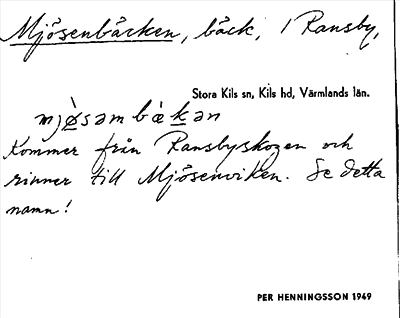 Mjösenbäcken, bäck, i Ransby,
Stora Kils sn, Kils hd, Värmlands län.
mjø̀sambàkan
Kommer från Ransbyskogen och
rinner till Mjösenviken. Se detta
namn!
PER HENNINGSSON 1949